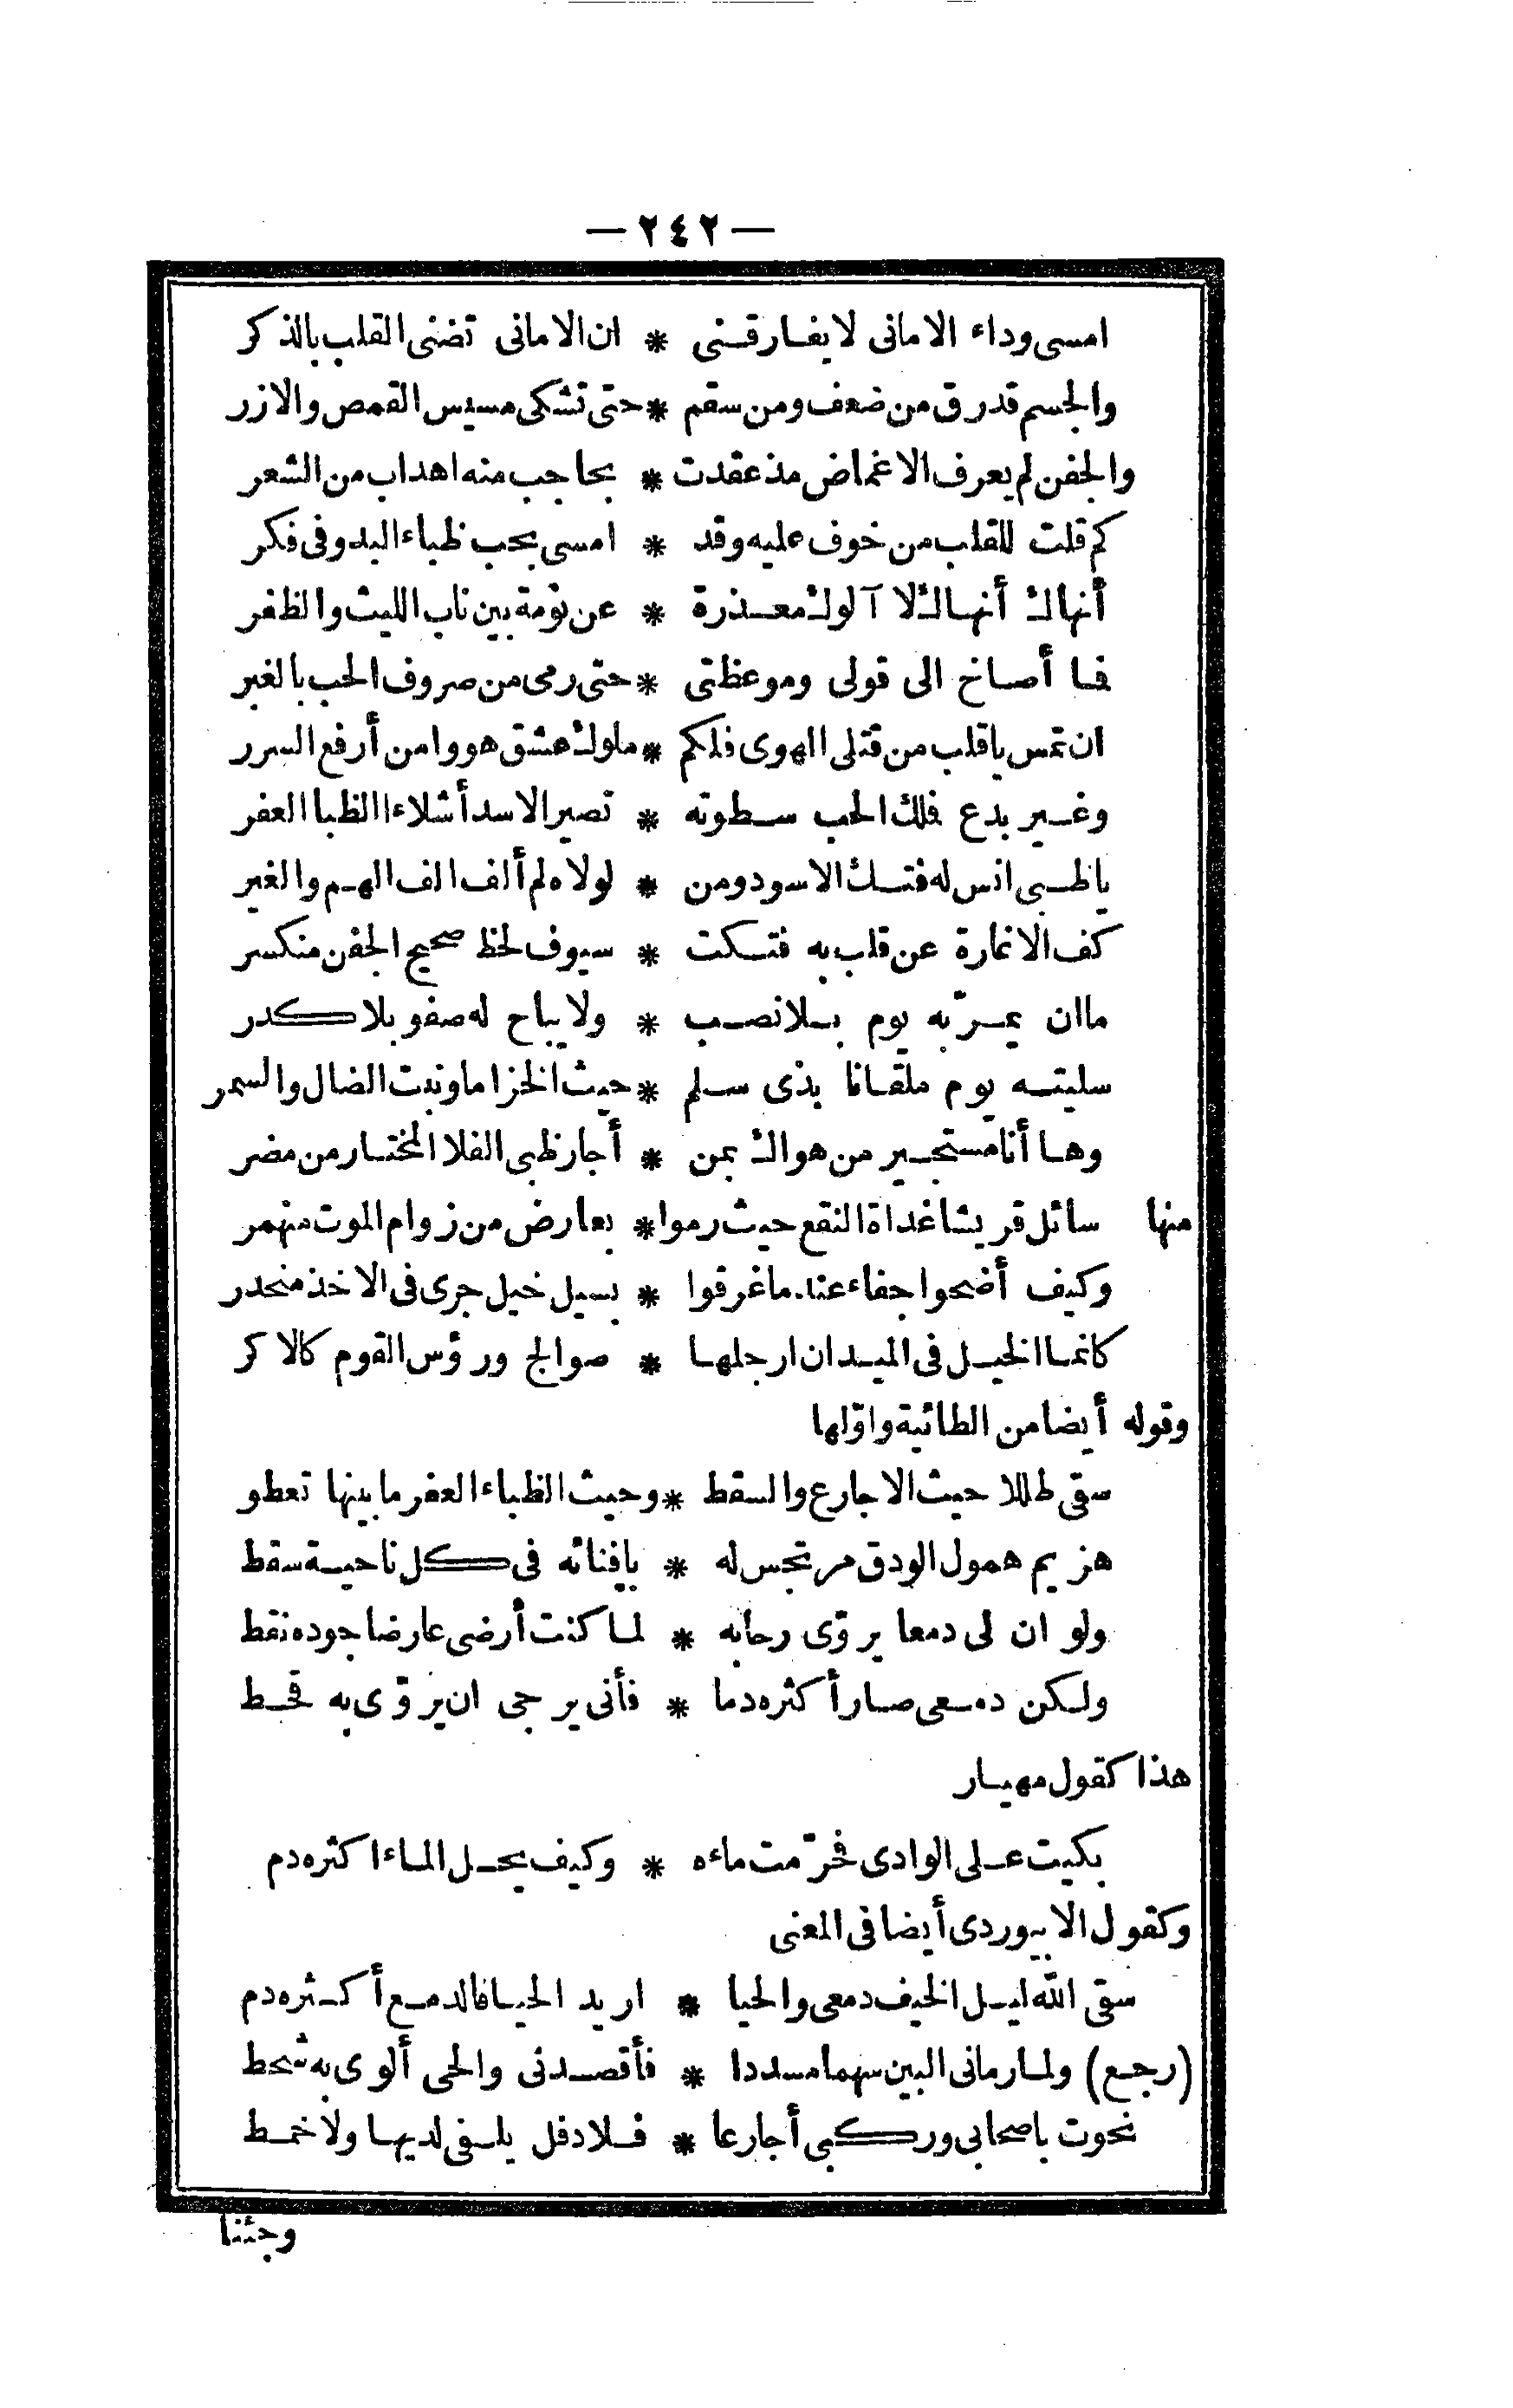 — ٢٤٢ —
امسى وداء الامانى لا يفارقنى * ان الامانى تضنى القلب بالذكر
والجسم قدرق من ضعف ومن سقم * حتى تشكى مسيس القمص والازر
والجفن لم يعرف الاغماض مذ عقدت * بحاجب منه اهداب من الشعر
كم قلت للقلب من خوف عليه وقد * امسى بحب ظباء البدو فى فكر
أنهاك أنهاك لا آلوك معذرة * عن نومة بين ناب الليث والظفر
فما أصاخ الى قولى وموعظتى * حتى رمى من صروف الحب بالغير
ان تمس ياقلب من قتلى الهوى فلكم * ملوك عشق هووا من أرفع السرر
وغير بدع فلك الحب سطوته * تصير الاسد أشلاء الظبا العفر
يا ظبى انس له فتك الاسود ومن * لولاه لم ألف الف الهم والغير
كف الاغارة عن قلب به فتكت * سيوف لحظ صحيح الجفن منكسر
ما ان يمرّ به يوم بلا نصب * ولا يباح له صفو بلا كدر
سلبته يوم ملقانا بذى سلم * حيث الخزاما ونبت الضال والسمر
وها أنا مستجير من هواك بمن * أجار ظبى الفلا المختار من مضر
منها سائل قريشا غداة النقع حيث رموا * بعارض من زوام الموت منهمر
وكيف أضحوا جفاء عند ما غرقوا * بسيل خيل جرى فى الاخذ منحدر
كانما الخيل فى الميدان ارجلها * صوالج ورؤس القوم كالاكر
وقوله أيضا من الطائية واوّلها
سقى طللا حيث الاجارع والسقط * وحيث الظباء العفر ما بينها تعطو
هزيم همول الودق مرتجس له * بافنائه فى كل ناحية سقط
ولو ان لى دمعا يروّى رحابه * لما كنت أرضى عارضا جوده نقط
ولكن دمعى صار أكثره دما * فأنى يرجى ان يروّى به قحط
هذا كقول مهيار
بكيت على الوادى فحرّمت ماءه * وكيف يحل الماء اكثره دم
وكقول الابيوردى أيضا فى المعنى
سقى الله ليل الخيف دمعى والحيا * اريد الحيا فالدمع أكثره دم
(رجع) ولما رمانى البين سهما مسددا * فأقصدنى والحى ألوى به شحط
نحوت باصحابى وركبى أجارعا * فلا دفل يلفى لديها ولا خمط
وجئنا